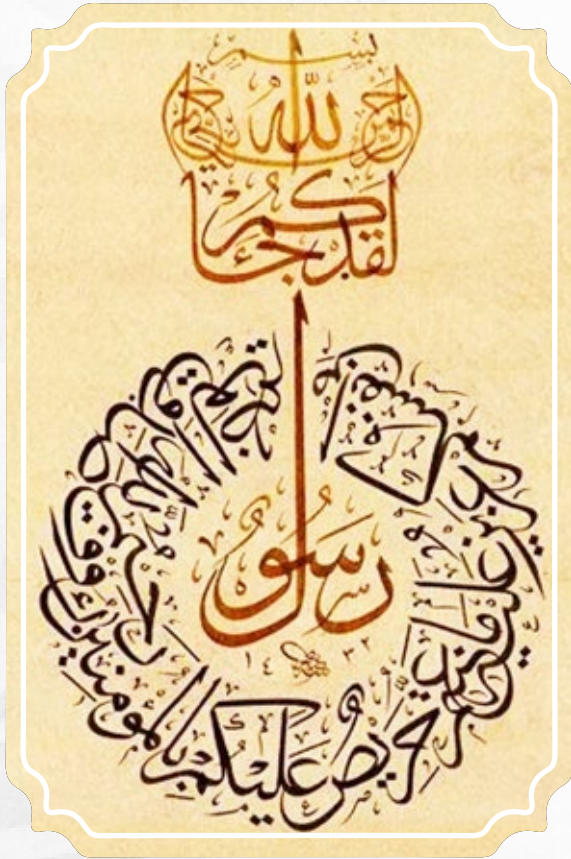 بسم
الله الرحمن الرحيم
لقد جاءكم
رسول
من أنفسكم عزيز عليه ما عنتم حريص عليكم بالمؤمنين رءوف رحيم
١٤ ٣٢